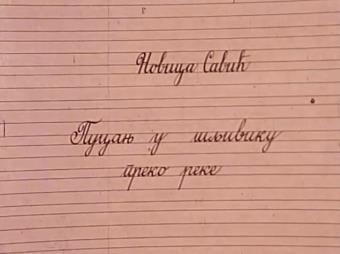 Новица Савић
Пуцањ у шљивику
преко реке